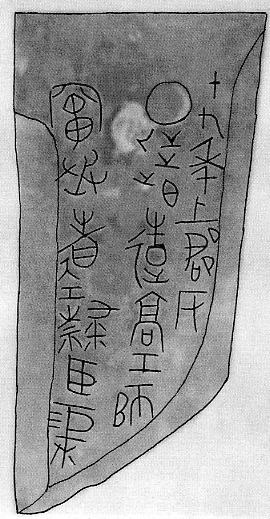 十九年上郡守
逪造高工師
竈丞豬工隸臣渠